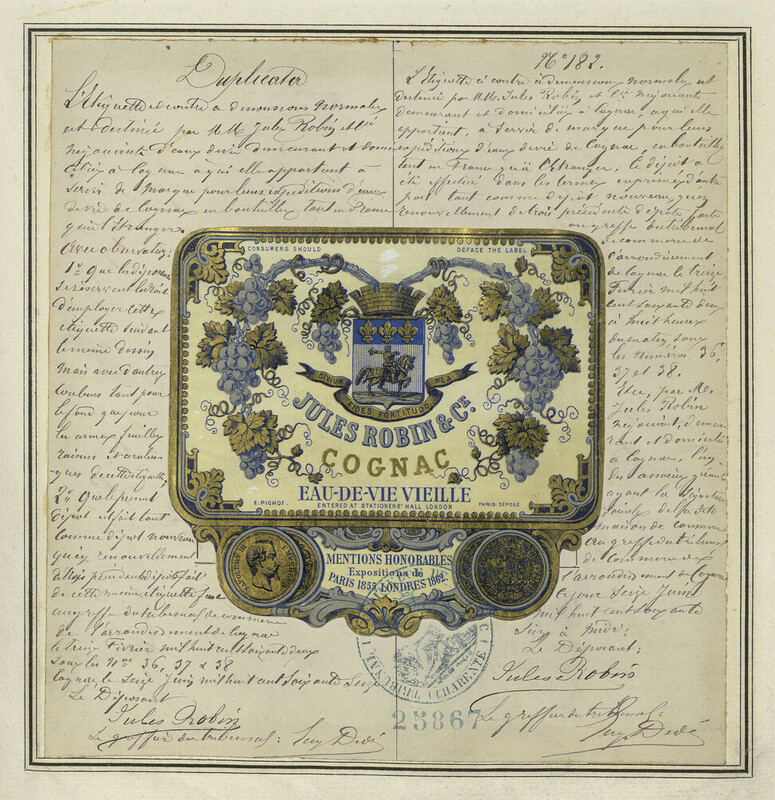 Duplicata
L'Etiquette ci contre a dimensions normales
est destinée par M M Jules Robin et Cie
négociants d'eaux de vie demeurant et domi
ciliés à Cognac à qui elle appartient à
servir de marque pour leurs expéditions d'eaux
de vie de Cognac en bouteilles tant en France
qu'à l'Etranger.
Avec observation:
1o que les déposants
se réservent le droit
d'employer cette
étiquette suivant
le même dessin
mais avec d'autres
couleurs tant pour
le fond que pour
les armes feuilles
raisins et
de cette étiquette.
2o Que le présent
dépôt est fait tant
comme dépôt nouveau
qu'en renouvellement
de trois précédents dépôts fait
de cette même étiquette
au greffe du tribunal de commerce
de l'arrondissement de Cognac
le treize Février mil huit cent soixante deux
sous les Nos 36, 37 & 38
Cognac le Seize Juin mil huit cent soixante Seize
Le Déposant
Jules Robin
Le greffier du tribunal:
No 182.
L'Etiquette ci contre à dimensions normales est
destinée par M.M. Jules Robin et Cie négociants
demeurant et domiciliés à Cognac, à qui elle
appartient, à servir de marque pour leurs
expéditions d'eaux de vie de Cognac, en bouteilles
tant en France qu'à l'Etranger. Le dépôt a
été effectué dans les termes exprimés d'autre
part tant comme dépôt nouveau qu'en
renouvellement de trois précédents dépôts faits
au greffe du tribunal
de commerce de
l'arrondissement
de Cognac le treize
Février mil huit
cent soixante deux
à huit heures
du matin, sous
les numéros 36,
37 et 38.
par M.
Jules Robin
négociant, demeu
rant et domicilié
à Cognac, l'un
des associés gérants
ayant la signature
sociale de la dite
maison de commerce
au greffe du tribunal
de Commerce de
l'arrondissement de Cognac
ce jour Seize Juin
mil huit cent soixante
Seize à midi:
Le Déposant:
Jules Robin
Le greffier du tribunal:
CONSUMERS SHOULD
DEFACE THE LABEL
CIVIUM
MEA
FIDES FORTITUDO
JULES ROBIN & Cie
COGNAC
EAU-DE-VIE VIEILLE
E. PICHOT.
ENTERED AT STATIONERS' HALL LONDON
PARIS DÉPOSÉ
NAPOLEON III EMPEREUR
MENTIONS HONORABLES
Expositions de
PARIS 1855, LONDRES 1862.
TRIBUNAL
(CHARENTE)
25867